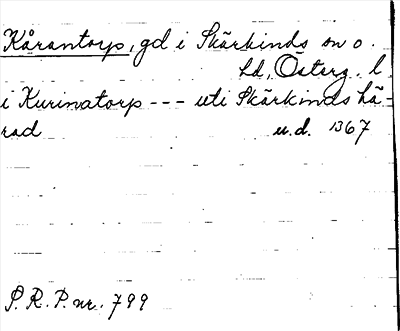 Kårantorp, gd i Skärkinds sn o.
hd, Österg. l
i Kurinatorp --- uti Skärkinds hä-
rad u.d. 1367
S. R. P. nr. 799